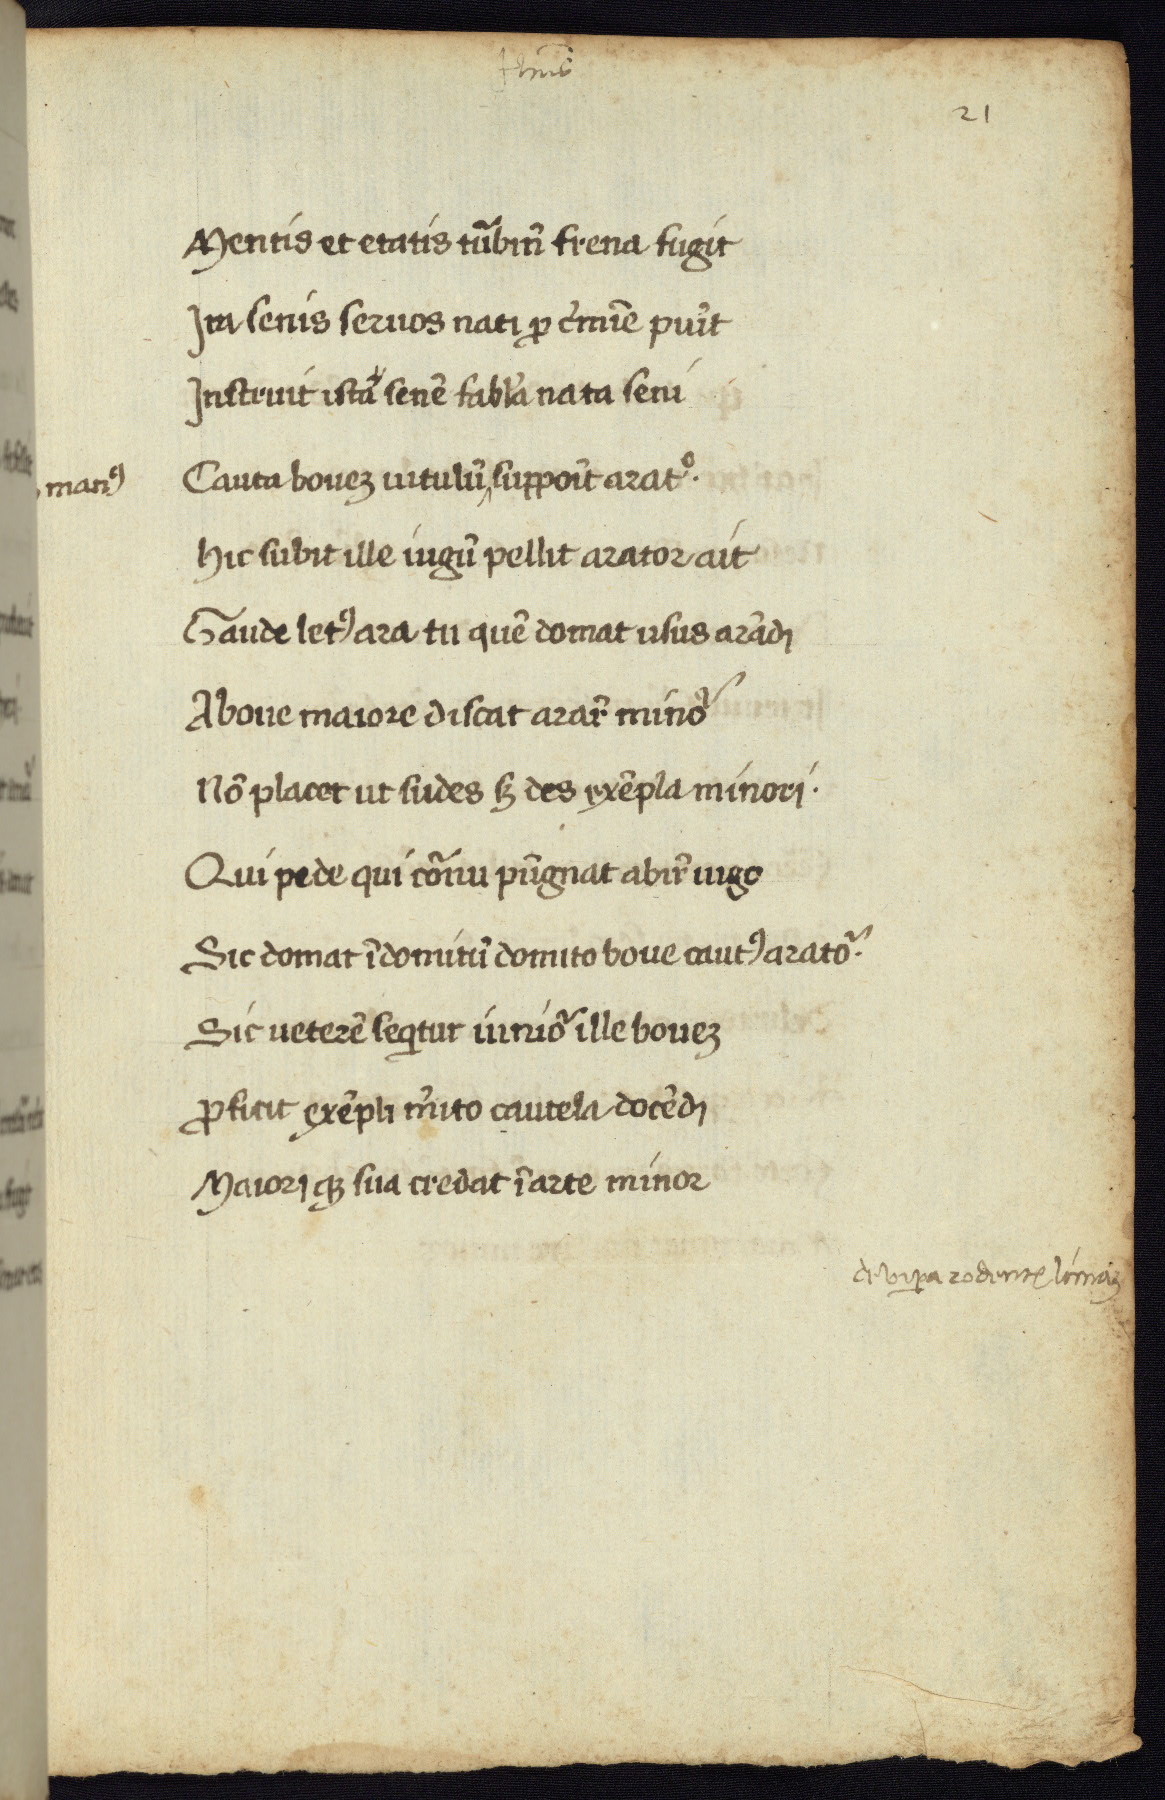 21
Mentis et etatis tu᷑bin᷑ frena fugit
Ita senis seruos nati ꝓ c᷑mīe pūit
Instruit istā senē fabl̓a nata seni
manꝰ
Cauta boueꝫ uitulūꝫ suppoīt aratᵒ·
hic subit ille iugū pellit arator ait
Gaude letꝰ ara tu quē domat usus arādi
A boue maiore discat arar̄ minoᷣ
Nō placet ut sudes sꝫ des exēpla minori·
Qui pede qui cōnu pūgnat abir̄ iugo
Sic domat īdomitū domito boue cautꝰ aratoᷣ·
Sic ueterē seqͥtur iunioᷣ ille boueꝫ
ꝓficit exēpli m̓ito cautela docēdi
Maioriqꝫ sua credat ī arte minor
de uiꝑa rodente limaꝫ